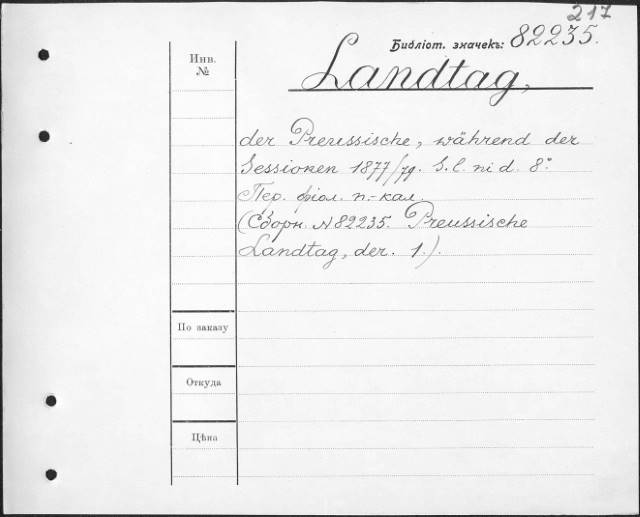 217
Библіот. значекъ: 82235.
Инв.
№
Landtag,
der Preussische, während der
Sessionen 1877/79. S. l. ni d. 8º.
Пер. фіол. п.-кал.
(Сборн. № 82235. Preussische
Landtag, der. 1.).
По заказу
Откуда
Цѣна